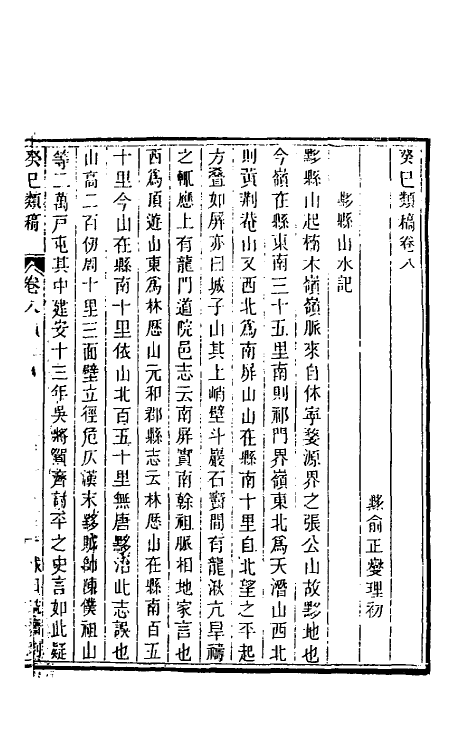 癸巳類稿卷八
黟俞正燮理初
黟縣山水記
黟縣山起楠木嶺嶺脈來自休寧婺源界之張公山故黟地也
今嶺在縣東南三十五里南則祁門界嶺東北爲天潛山西北
則黃荆菴山又西北爲南屏山山在縣南十里自北望之平起
方叠如屏亦曰城子山其上峭壁斗巖石竇間有龍湫亢旱禱
之輒應上有龍門道院邑志云南屏實南榦祖脈相地家言也
西爲頂遊山東爲林歷山元和郡縣志云林歷山在縣南百五
十里今山在縣南十里依山北百五十里無唐黟治此志誤也
山高二百仞周十里三面壁立徑危仄漢末黟賊帥陳僕祖山
等二萬戸屯其中建安十三年吳將賀齊討平之史言如此疑
癸巳類稿
卷八